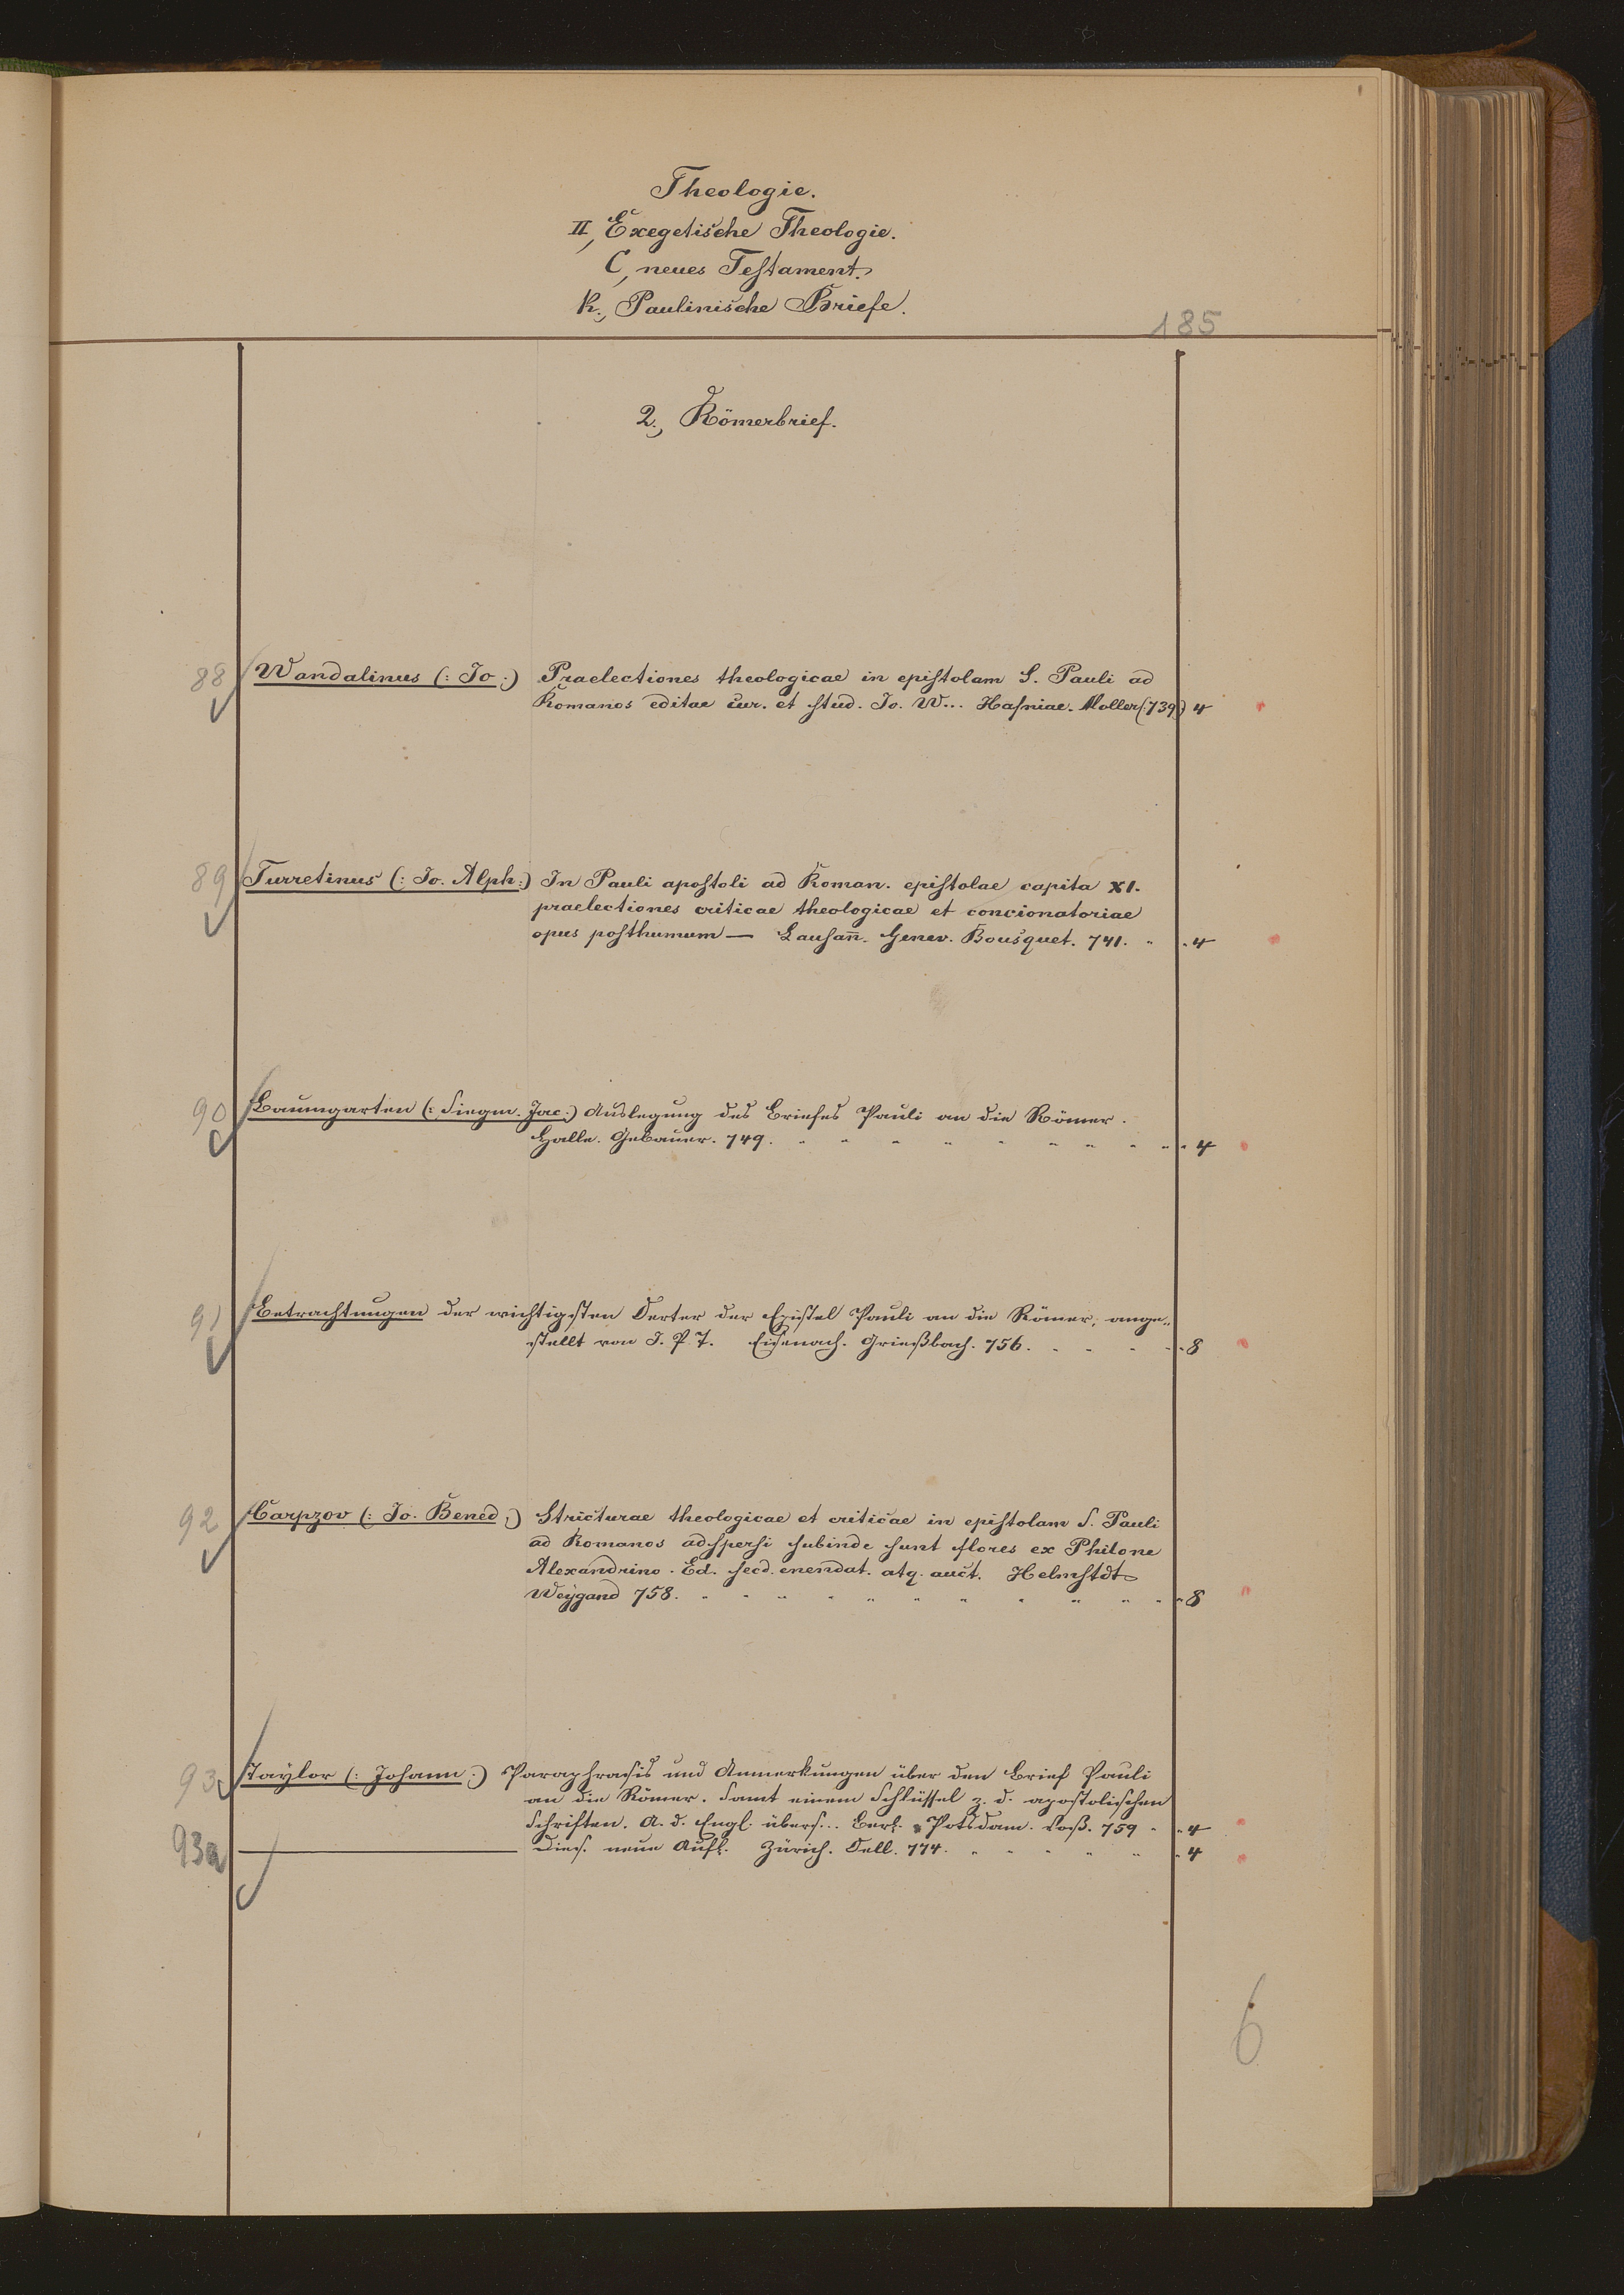 Theologie.
II, Exegetische Theologie.
C, neues Testament.
k., Paulinische Briefe.
185
2., Römerbrief.
88 Wandalinus (: Jo :) Praelectiones theologicae in epistolam S. Pauli ad
Romanos editae cur. et stud. Jo. W... Hafniae. Moller (739) 4
89 Turretinus (: Jo. Alph :) In Pauli apostoli ad Roman. epistolae capita XI.
praelectiones criticae theologicae et concionatoriae
opus posthumum — Lausan̄. Genev. Bousquet. 741. " " 4
90 Baumgarten (: Siegm. Jac :) Auslegung des Briefes Pauli an die Römer.
Halle. Gebauer. 749. " " " " " " " " " " 4
91 Betrachtungen der wichtigsten Oerter der Epistel Pauli an die Römer, ange-
stellt von J. P. T. Eisenach. Grießbach. 756. " " " " " 8
92 Carpzov (: Jo. Bened :) Stricturae theologicae et criticae in epistolam S. Pauli
ad Romanos adspersi subinde sunt flores ex Philone
Alexandrino. Ed. secd. enendat. atq. auct. Helmstdt
Weygand 758. " " " " " " " " " " " " 8
93 Taylor (: Johann :) Paraphrasis und Anmerkungen über den Brief Pauli
an die Römer. Samt einem Schlüssel z. d. apostolischen
Schriften. A. d. Engl. übers... Berl. Potsdam. Voß. 759 " " 4
93a —— Dies. neue Aufl. Zürich. Orell. 774. " " " " " " 4
6